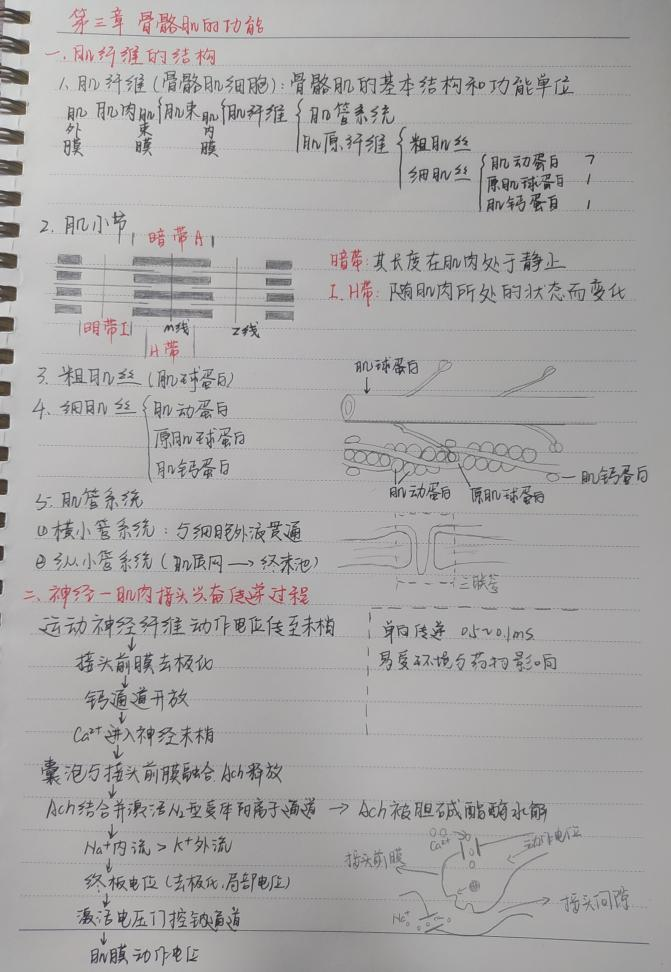 第三章 骨骼肌的功能
一.肌纤维的结构
1.肌纤维(骨骼肌细胞):骨骼肌的基本结构和功能单位
肌外膜 肌肉 肌束膜 肌束 肌内膜 肌纤维 肌管系统
肌原纤维 粗肌丝
细肌丝 肌动蛋白 7
原肌球蛋白 1
肌钙蛋白 1
2.肌小节
暗带A
暗带:其长度在肌肉处于静止
I.H带:随肌肉所处的状态而变化
明带I M线 Z线
H带
3.粗肌丝(肌球蛋白)
肌球蛋白
4.细肌丝 肌动蛋白
原肌球蛋白
肌钙蛋白
肌钙蛋白
肌动蛋白 原肌球蛋白
5.肌管系统
①横小管系统:与细胞外液贯通
②纵小管系统(肌质网→终末池)
三联管
二.神经-肌肉接头兴奋传递过程
运动神经纤维动作电位传至末梢
单向传递 0.5~0.1ms
易受环境与药物影响
接头前膜去极化
钙通道开放
Ca²⁺进入神经末梢
囊泡与接头前膜融合.Ach释放
Ach结合并激活N₂型受体阳离子通道 → Ach被胆碱酯酶水解
Na⁺内流>K⁺外流
Ca²⁺
动作电位
接头前膜
终板电位(去极化,局部电位)
接头间隙
激活电压门控钠通道
Na⁺
肌膜动作电位